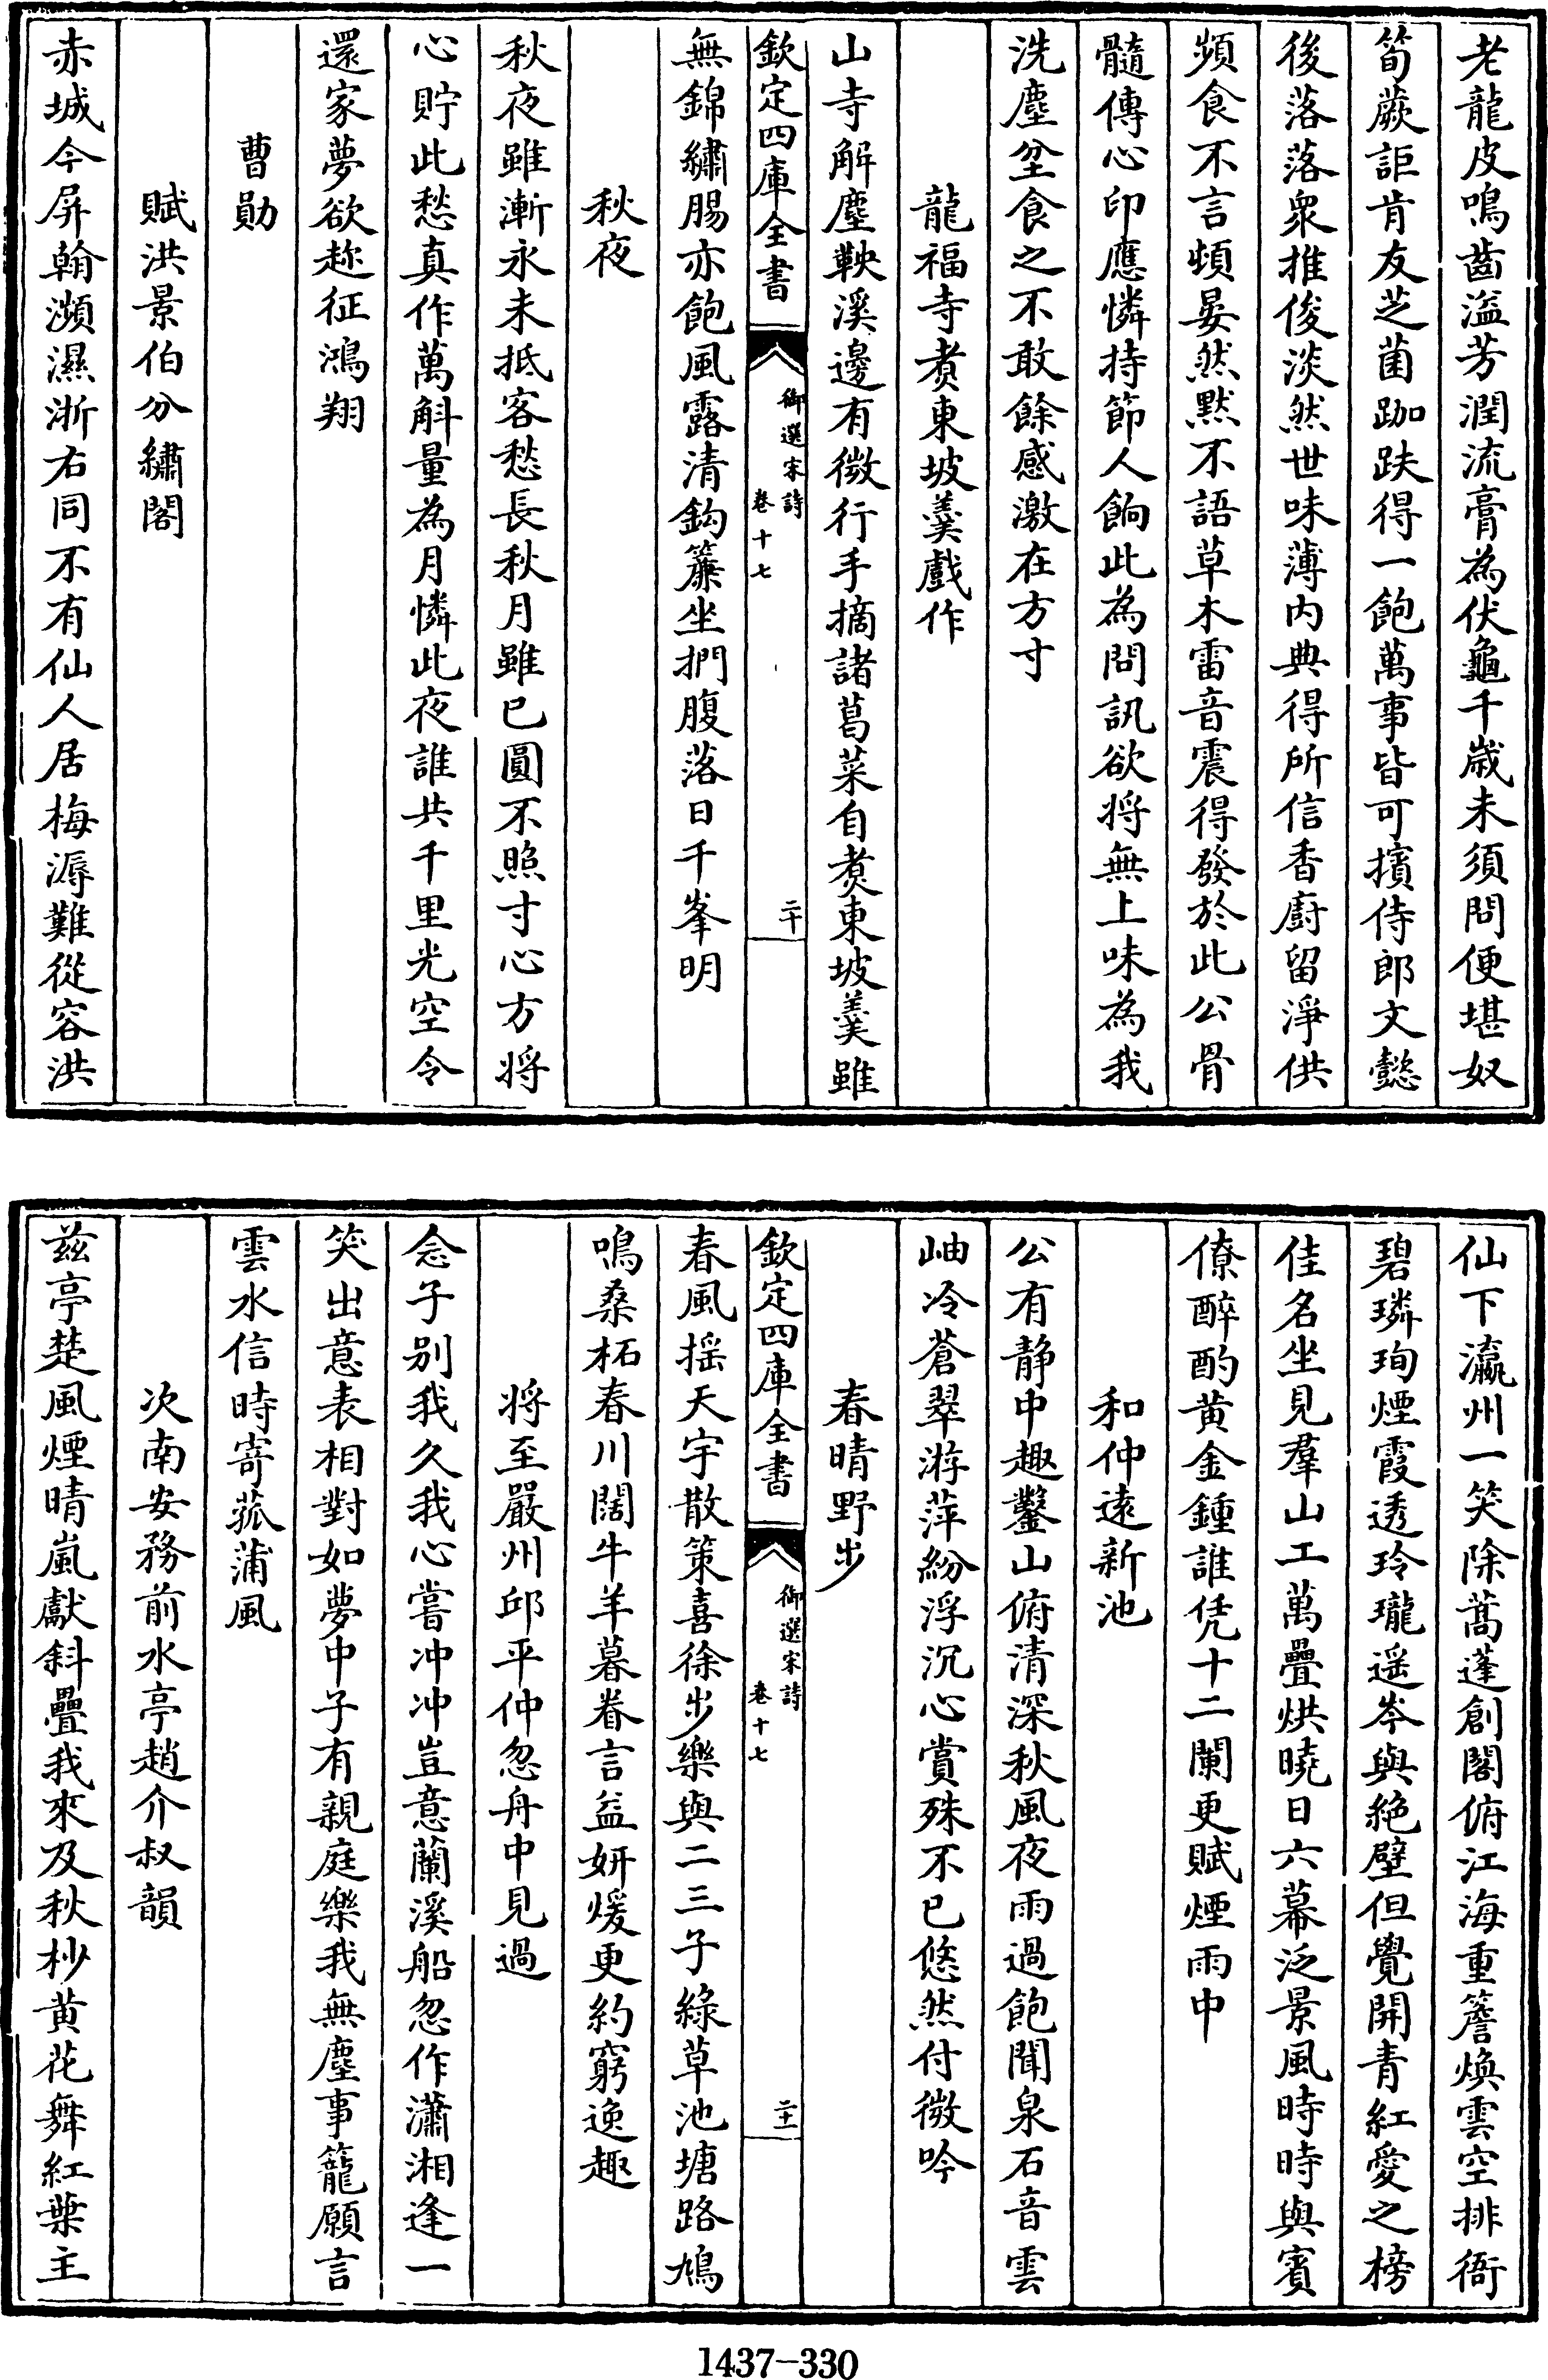 老龍皮鳴齒溢芳潤流膏為伏龜千歲未須問便堪奴
筍蕨詎肯友芝菌跏趺得一飽萬事皆可擯侍郎文懿
後落落衆推俊淡然世味薄内典得所信香廚留淨供
頻食不言頻晏然黙不語草木雷音震得發於此公骨
髓傳心印應憐持節人餉此為問訊欲将無上味為我
洗塵坌食之不敢餘感激在方寸
龍福寺煑東坡羹戲作
山寺解塵鞅溪邊有微行手摘諸葛菜自煑東坡羹雖
欽定四庫全書
御選宋詩
卷十七
二十
無錦繡腸亦飽風露清鈎簾坐捫腹落日千峯明
秋夜
秋夜雖漸永未抵客愁長秋月雖已圓不照寸心方將
心貯此愁真作萬斛量為月憐此夜誰共千里光空令
還家夢欲趂征鴻翔
曹勛
賦洪景伯分繡閣
赤城今屏翰瀕濕浙右同不有仙人居梅溽難從容洪
仙下瀛州一笑除蒿蓬創閣俯江海重簷煥雲空排衙
碧璘珣煙霞透玲瓏遥岑與絶壁但覺開青紅愛之榜
佳名坐見羣山工萬疊烘曉日六幕泛景風時時與賓
僚醉酌黄金鍾誰凭十二闌更賦煙雨中
和仲遠新池
公有静中趣鑿山俯清深秋風夜雨過飽聞泉石音雲
岫冷蒼翠游萍紛浮沉心賞殊不已悠然付微吟
春晴野步
欽定四庫全書
御選宋詩
卷十七
二十一
春風揺天宇散策喜徐步樂與二三子綠草池塘路鳩
鳴桑柘春川闊牛羊暮眷言益妍煖更約窮逸趣
將至嚴州邱平仲忽舟中見過
念子别我久我心嘗冲冲豈意蘭溪船忽作瀟湘逢一
笑出意表相對如夢中子有親庭樂我無塵事籠願言
雲水信時寄菰蒲風
次南安務前水亭趙介叔韻
兹亭楚風煙晴嵐獻斜疊我來及秋杪黄花舞紅葉主
1437-330